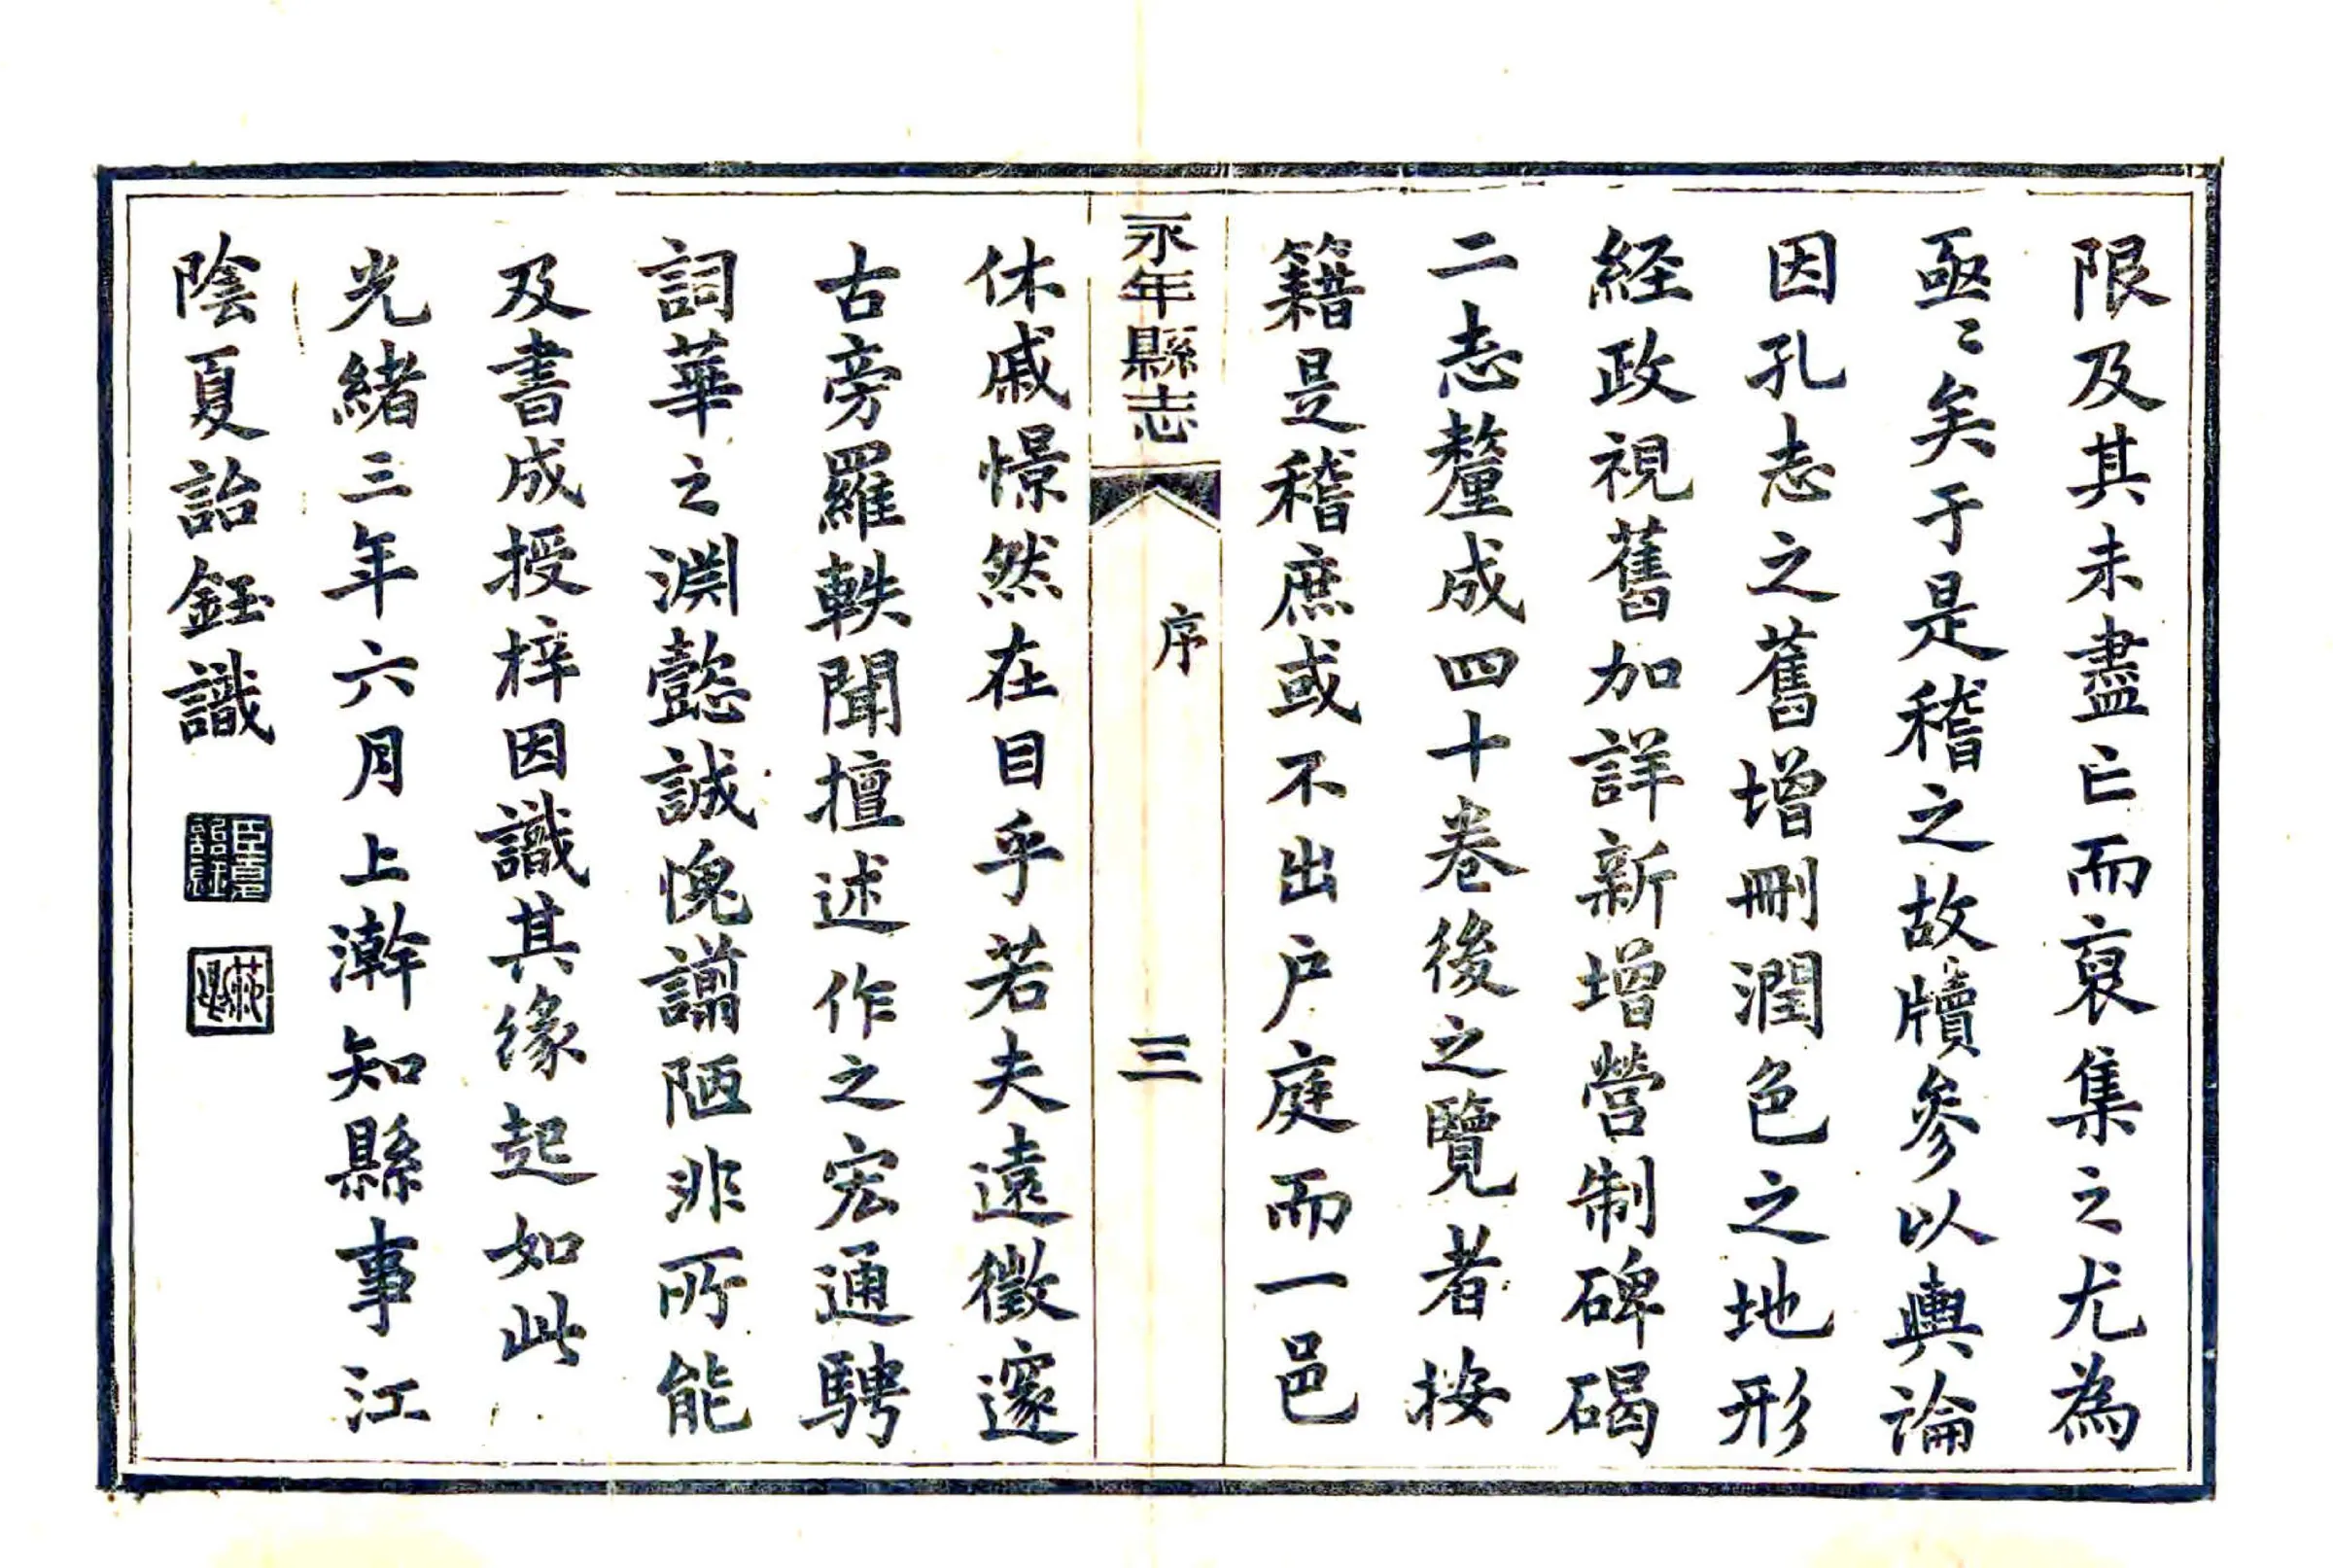 限及其未盡亡而裒集之尤為
亟〻矣于是稽之故牘參以輿論
因孔志之舊增刪潤色之地形
経政視舊加詳新增營制碑碣
二志釐成四十卷後之覽者按
籍是稽庶或不出户庭而一邑
永年縣志
序
三
休戚憬然在目乎若夫遠徵邃
古旁羅軼聞擅述作之宏通騁
詞華之淵懿誠愧譾陋非所能
及書成授梓因識其緣起如此
光緒三年六月上澣知縣事江
陰夏詒鈺識